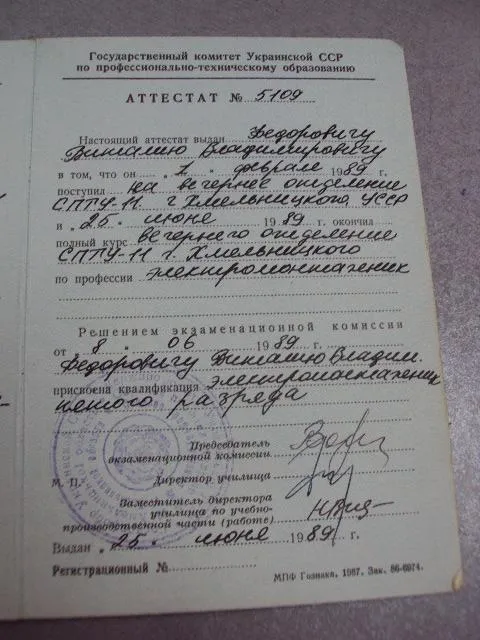 Государственный комитет Украинской ССР
по профессионально-техническому образованию
АТТЕСТАТ № 5109
Настоящий аттестат выдан Федоровичу
Виталию Владимировичу
в том, что он „ 2 " феврале 1989 г.
поступил на вечернее отделение
СПТУ-11 г. Хмельницкого УССР
и „ 25 " июне 1989 г. окончил
полный курс вечернего отделение
СПТУ-11 г. Хмельницкого
по профессии электромонтажник
Решением экзаменационной комиссии
от „ 8 " 06 1989 г.
Федоровичу Виталию Владим.
присвоена квалификация электромонтажник
пятого разряда
Председатель
экзаменационной комиссии
М. П. Директор училища
Заместитель директора
училища по учебно-
производственной части (работе)
Выдан „ 25 " июне 1989 г.
Регистрационный №
МПФ Гознака. 1987. Зак. 86-6974.